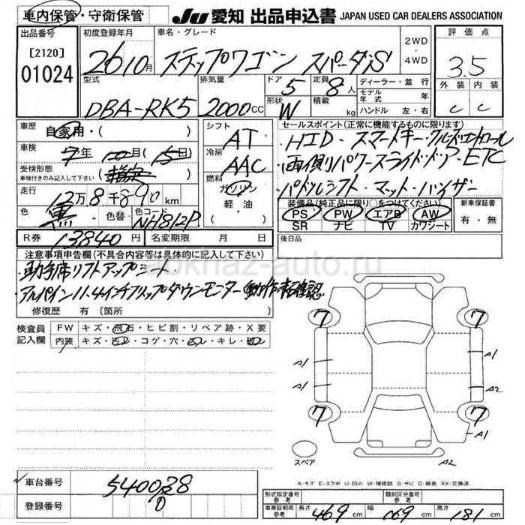 車内保管・守衛保管 JU 愛知 出品申込書 JAPAN USED CAR DEALERS ASSOCIATION
出品番号 [2120] 01024
初度登録年月 26 10月
車名・グレード ステップワゴン スパーダS
2WD・4WD
評価点 3.5
型式 DBA-RK5
排気量 2000cc
ドア 5
定員 8人
形状 W
積載 kg
ディーラー・並行
モデル年式 年
ハンドル 左・右
外装 内装
C C
車歴 自家用・( )
シフト AT
車検 7年 10月(15日)
冷房 AAC
受検形態
車検付のみ記入
燃料 ガソリン 軽油
走行 12万8千 km
色 黒
色替
色コード NH812P
R券 13840円
名変期限 月 日
セールスポイント(正常に機能するものに限る)
・HID・スマートキー・クルーズコントロール
・両側パワースライドドア・ETC
・パドルシフト・マット・バイザー
装備品(純正品に限り○をつけてください)
PS PW エアB AW
SR ナビ TV カワシート
新車保証書 有・無
後日品
注意事項申告欄(不具合箇所は具体的に記入して下さい)
・助手席リフトアップシート
・アルパイン11.4インチフリップダウンモニター動作未確認
修復歴 有(箇所 )
検査員記入欄
FW キズ・飛石・ヒビ割・リペア跡・X要
内装 キズ・コゲ・穴・キレ・
7 7 7 7
A1 A1 A1 A2
スペア
車台番号 540038
登録番号
長さ 469cm
幅 169cm
高さ 181
sokhaz-auto.ru